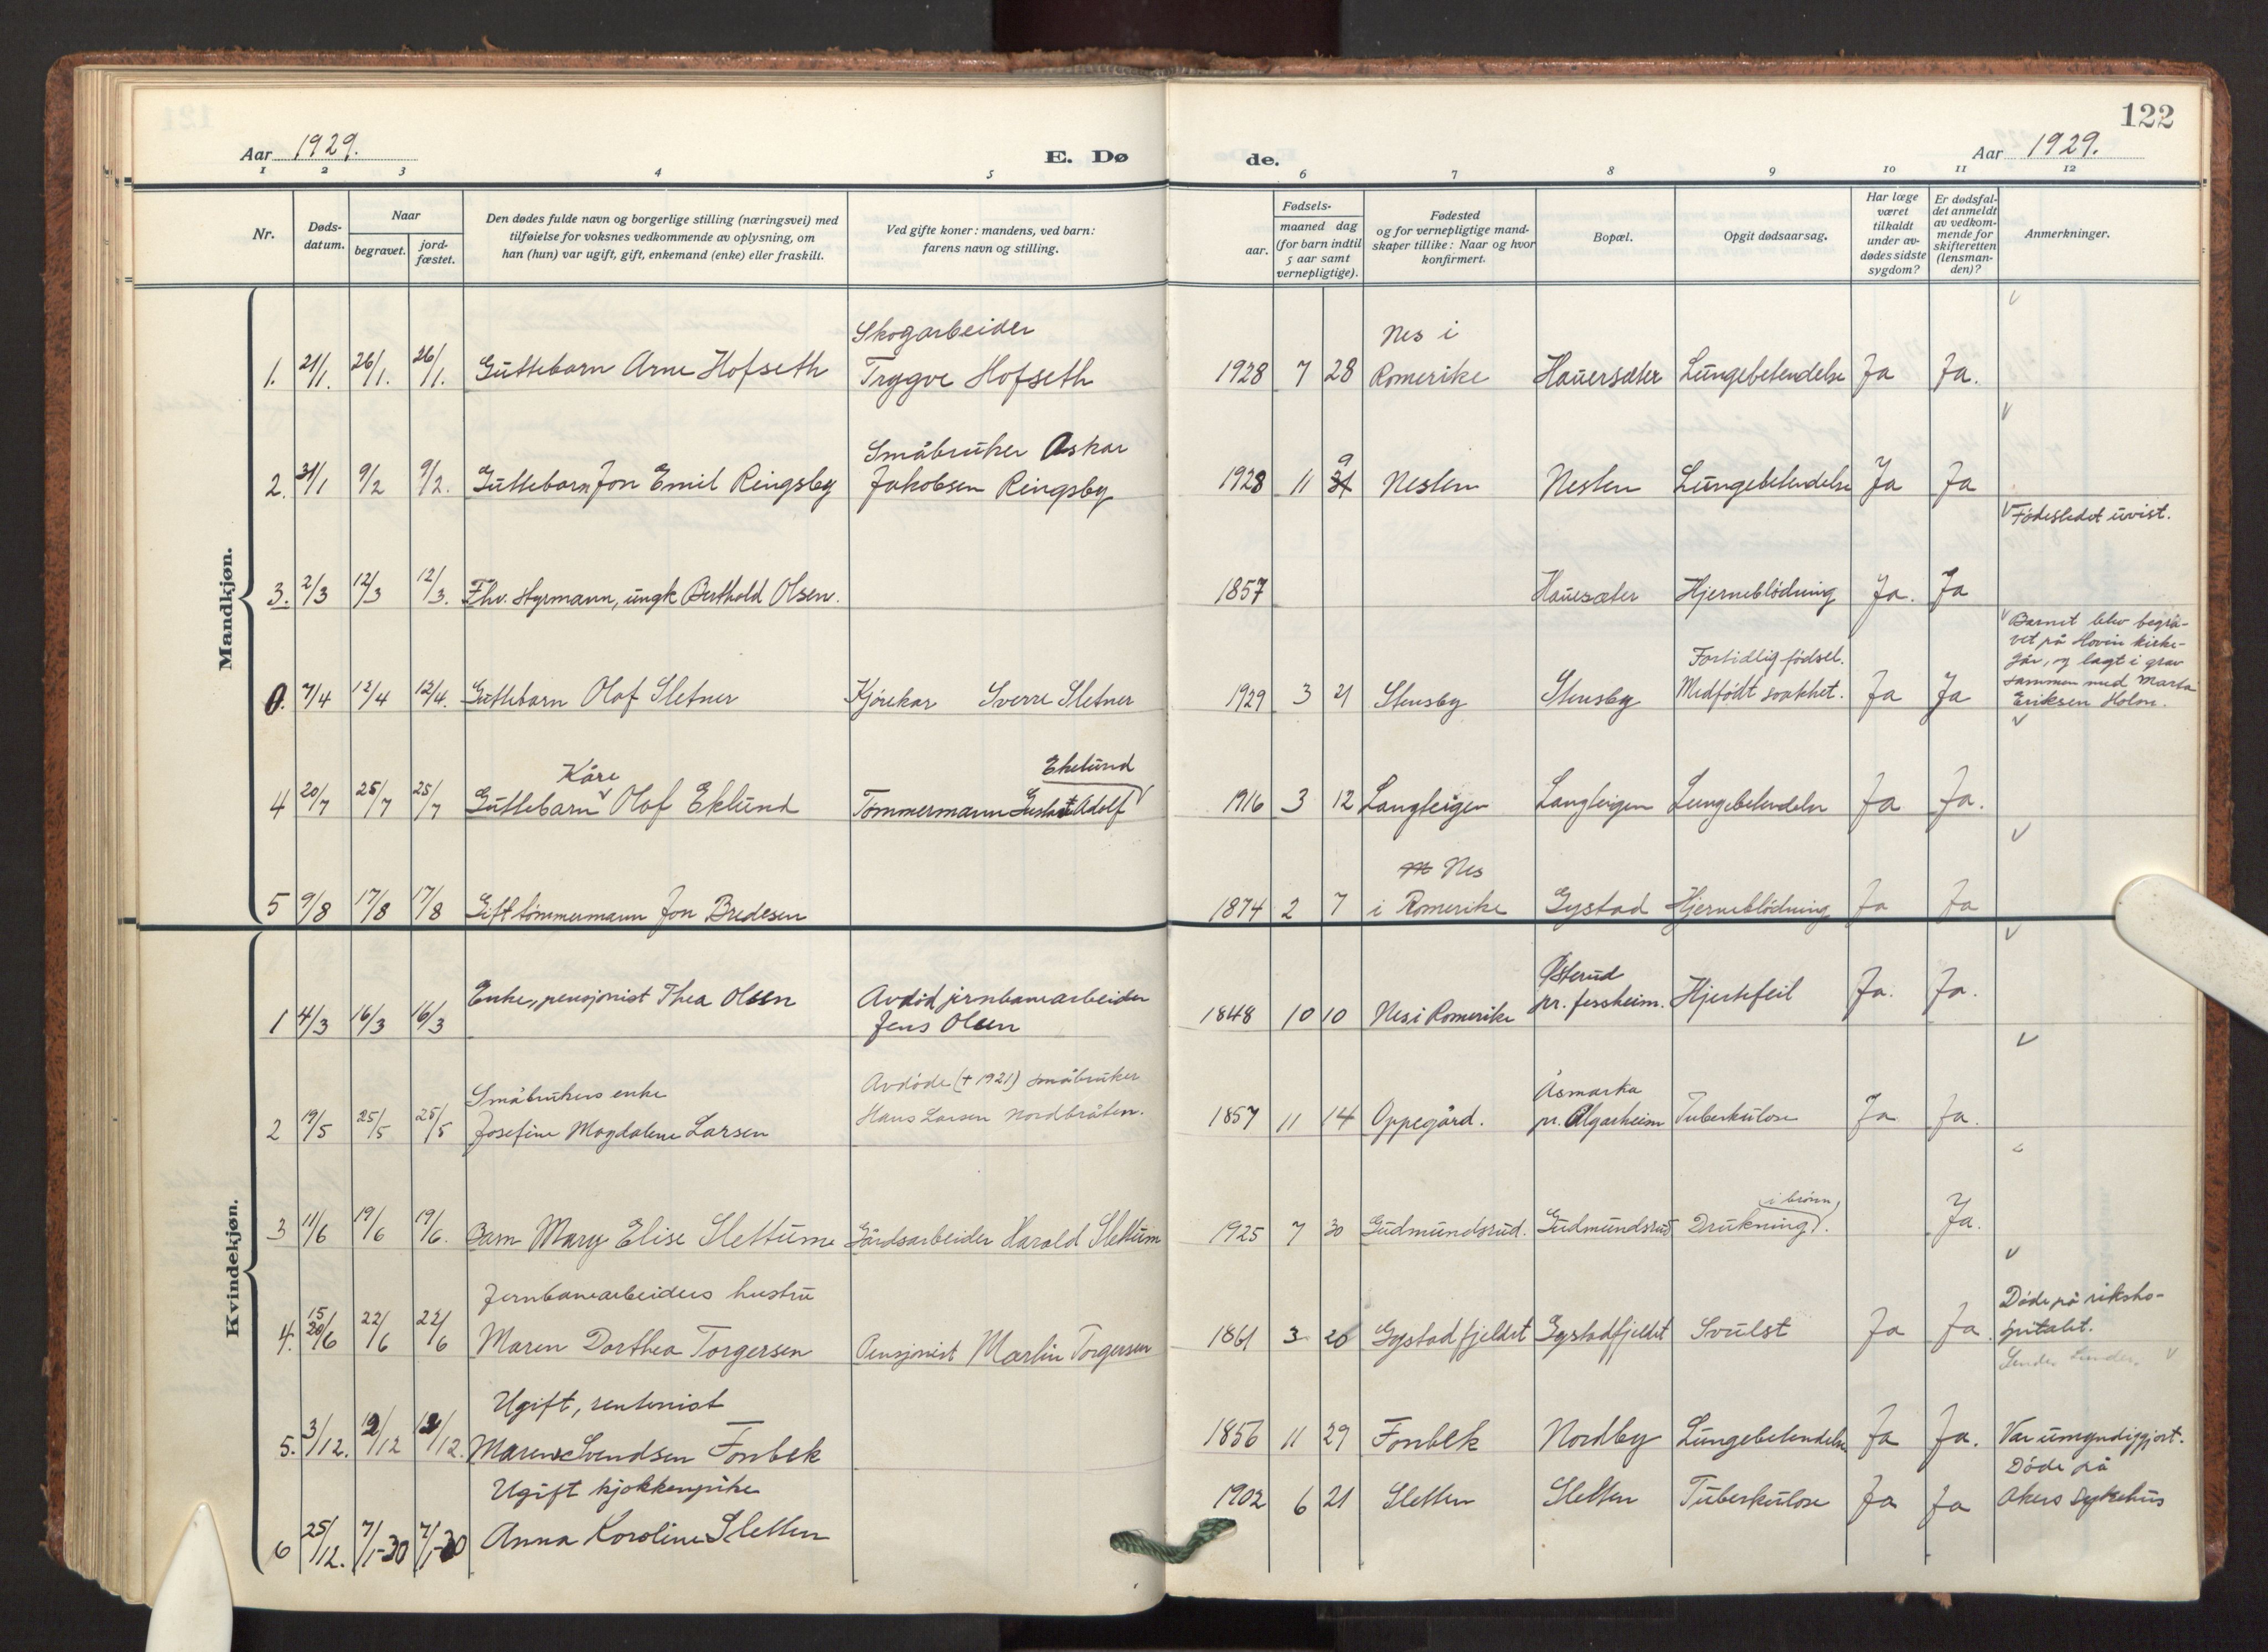 122
Aar 1929. E. Dø de. Aar 1929.
1 2 3 4 5 6 7 8 9 10 11 12
Nr.
Døds-
datum.
Naar
begravet.
jord-
fæstet.
Den dødes fulde navn og borgerlige stilling (næringsvei) med
tilføielse for voksnes vedkommende av oplysning, om
han (hun) var ugift, gift, enkemand (enke) eller fraskilt.
Ved gifte koner: mandens, ved barn:
farens navn og stilling.
Fødsels-
aar.
maaned dag
(for barn indtil
5 aar samt
vernepligtige).
Fødested
og for vernepligtige mand-
skaper tillike: Naar og hvor
konfirmert.
Bopæl.
Opgit dødsaarsag.
Har læge
været
tilkaldt
under av-
dødes sidste
sygdom?
Er dødsfal-
det anmeldt
av vedkom-
mende for
skifteretten
(lensman-
den)?
Anmerkninger.
Mandkjøn.
Skogarbeider Nes i
1. 21/1. 26/1. 26/1. Guttebarn Arne Hofseth Trygve Hofseth 1928 7 28 Romerike Hauersæter Lungebetendelse Ja Ja.
Småbruker Oskar 9
2. 31/1 9/2 9/2. Guttebarn Jon Emil Ringsby Jakobsen Ringsby 1928 11 31 Nesten Nesten Lungebetendelse Ja Ja
Fødestedet uvist.
3. 2/3 12/3 12/3. Fhv. styrmann, ungk Berthold Olsen. 1857 Hauesæter Hjerneblödning Ja. Ja
Barnet blev begra-
vet på Hovin kirke-
går, og lagt i grav
sammen med Marta
Eriksen Holm.
Fortidlig födsel.
0. 7/4 12/4 12/4. Guttebarn Olaf Sletner Kjørekar Sverre Sletner 1929 3 21 Stensby Stensby Medfødt svakhet. Ja Ja
Kåre Ekelund
4 20/7 25/7 25/7 Guttebarn Olof Eklund Tømmermann Gustav Adolf 1916 3 12 Langleigen Langleigen Lungebetendelse Ja Ja.
Nes
5 9/8 17/8 17/8 Gift tömmermann Jon Bredesen 1874 2 7 i Romerike Gystad Hjerneblödning Ja Ja
Kvindekjøn.
Enke, pensjonist Thea Olsen Avdöd jernbanearbeider Østerud
1 4/3 16/3 16/3 Jens Olsen 1848 10 10 Nes i Romerike pr. Jessheim. Hjertefeil Ja. Ja.
Småbrukers enke Avdøde (+ 1921) småbruker Åsmarka
2 19/5 25/5 25/5 Josefine Magdalene Larsen Hans Larsen Nordbråten. 1857 11 14 Oppegård. pr. Algarheim Tuberkulose Ja Ja.
i brønn
3 11/6 19/6 19/6. Barn Mary Elise Slettum Gårdsarbeider Harald Slettum 1925 7 30 Gudmundsrud. Gudmundsrud Drukning. Ja.
Jernbanearbeiders hustru Døde på riksho-
spitalet.
4. 15 20/6 22/6 22/6 Maren Dorthea Torgersen Pensjonist Martin Torgersen 1861 3 20 Gystadfjeldet Gystadfjeldet Svulst Ja Ja.
Ugift, rentenist
5. 3/12. 12/12 12/12. Maren Svendsen Fonbek 1856 11 29 Fonbek Nordby Lungebetendelse Ja Ja. Var umyndiggjort.
Ugift kjøkkenpike Döde på
6 25/12. 7/1-30 7/1-30 Anna Karoline Sletten 1902 6 21 Sletten Sletten Tuberkulose Ja Ja Akers sykehus